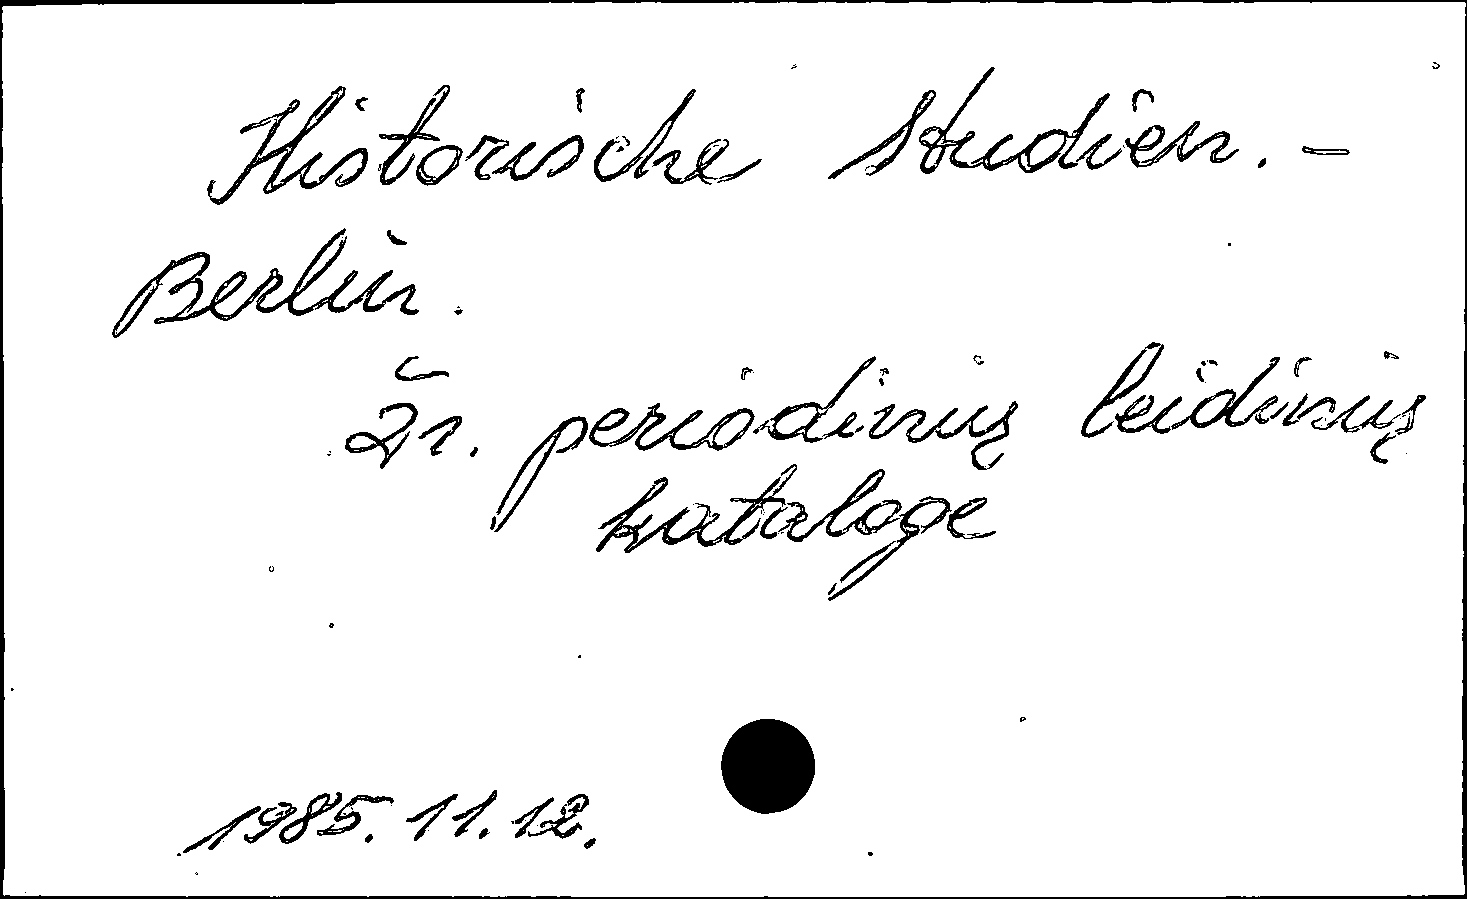 Historische Studien. –
Berlin.
Žr. periodinių leidinių
kataloge
1985.11.12.